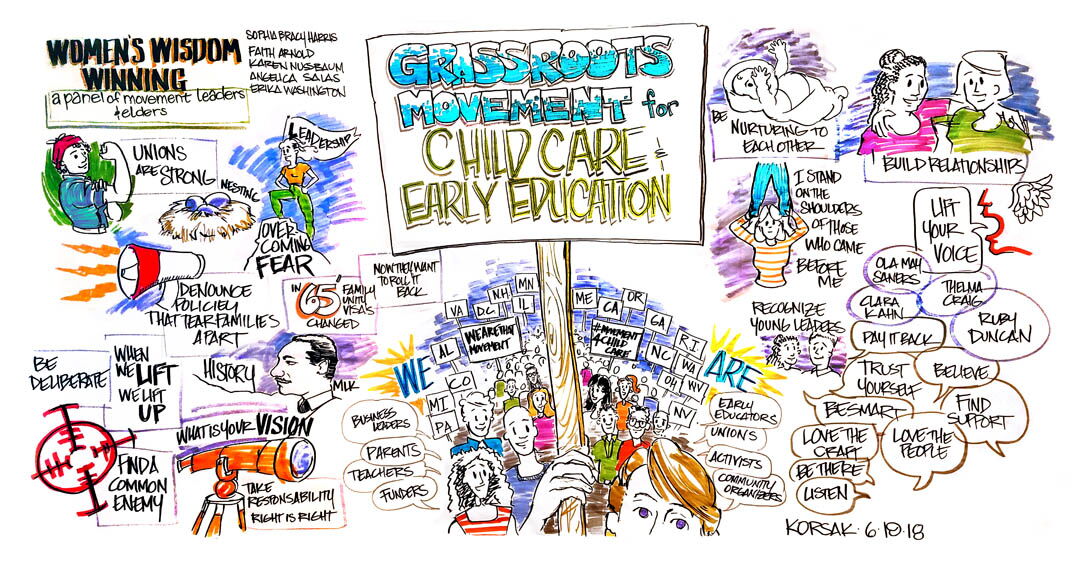 WOMEN'S WISDOM
WINNING
a panel of movement leaders
& elders
SOPHIA BRACY HARRIS
FAITH ARNOLD
KAREN NUSBAUM
ANGELICA SALAS
ERIKA WASHINGTON
UNIONS
ARE STRONG
NESTING
LEADERSHIP
OVER-
COMING
FEAR
DENOUNCE
POLICIELY
THAT TEAR FAMILIES
APART
IN
65
FAMILY
UNITY
VISA'S
CHANGED
NOW THEY WANT
TO ROLL IT
BACK
BE
DELIBERATE
WHEN
WE LIFT
WE LIFT
UP
HISTORY
MLK
WHAT IS YOUR VISION
FIND A
COMMON
ENEMY
TAKE
RESPONSABILITY
RIGHT IS RIGHT
GRASSROOTS
MOVEMENT for
CHILD CARE &
EARLY EDUCATION
WE
ARE
VA
D.C.
N.H
IL
MN
ME
CA
OR
GA
R.I
AL
WE ARE THAT
MOVEMENT
#MOVEMENT
4CHILD
CARE
NC
WA
WV
CO
OH
NY
MI
NV
PA
BUSINESS
LEADERS
PARENTS
TEACHERS
FUNDERS
EARLY
EDUCATORS
UNION'S
ACTIVISTS
COMMUNITY
ORGANIZERS
BE
NURTURING TO
EACH OTHER
I STAND
ON THE
SHOULDERS
OF THOSE
WHO CAME
BEFORE
ME
RECOGNIZE
YOUNG LEADERS
BUILD RELATIONSHIPS
LIFT
YOUR
VOICE
OLA MAY
SANERS
THELMA
CRAIG
CLARA
KAHN
RUBY
DUNCAN
PAY IT BACK
TRUST
YOURSELF
BELIEVE
BE SMART
FIND
SUPPORT
LOVE THE
CRAFT
LOVE THE
PEOPLE
BE THERE
LISTEN
KORSAK · 6·19·18